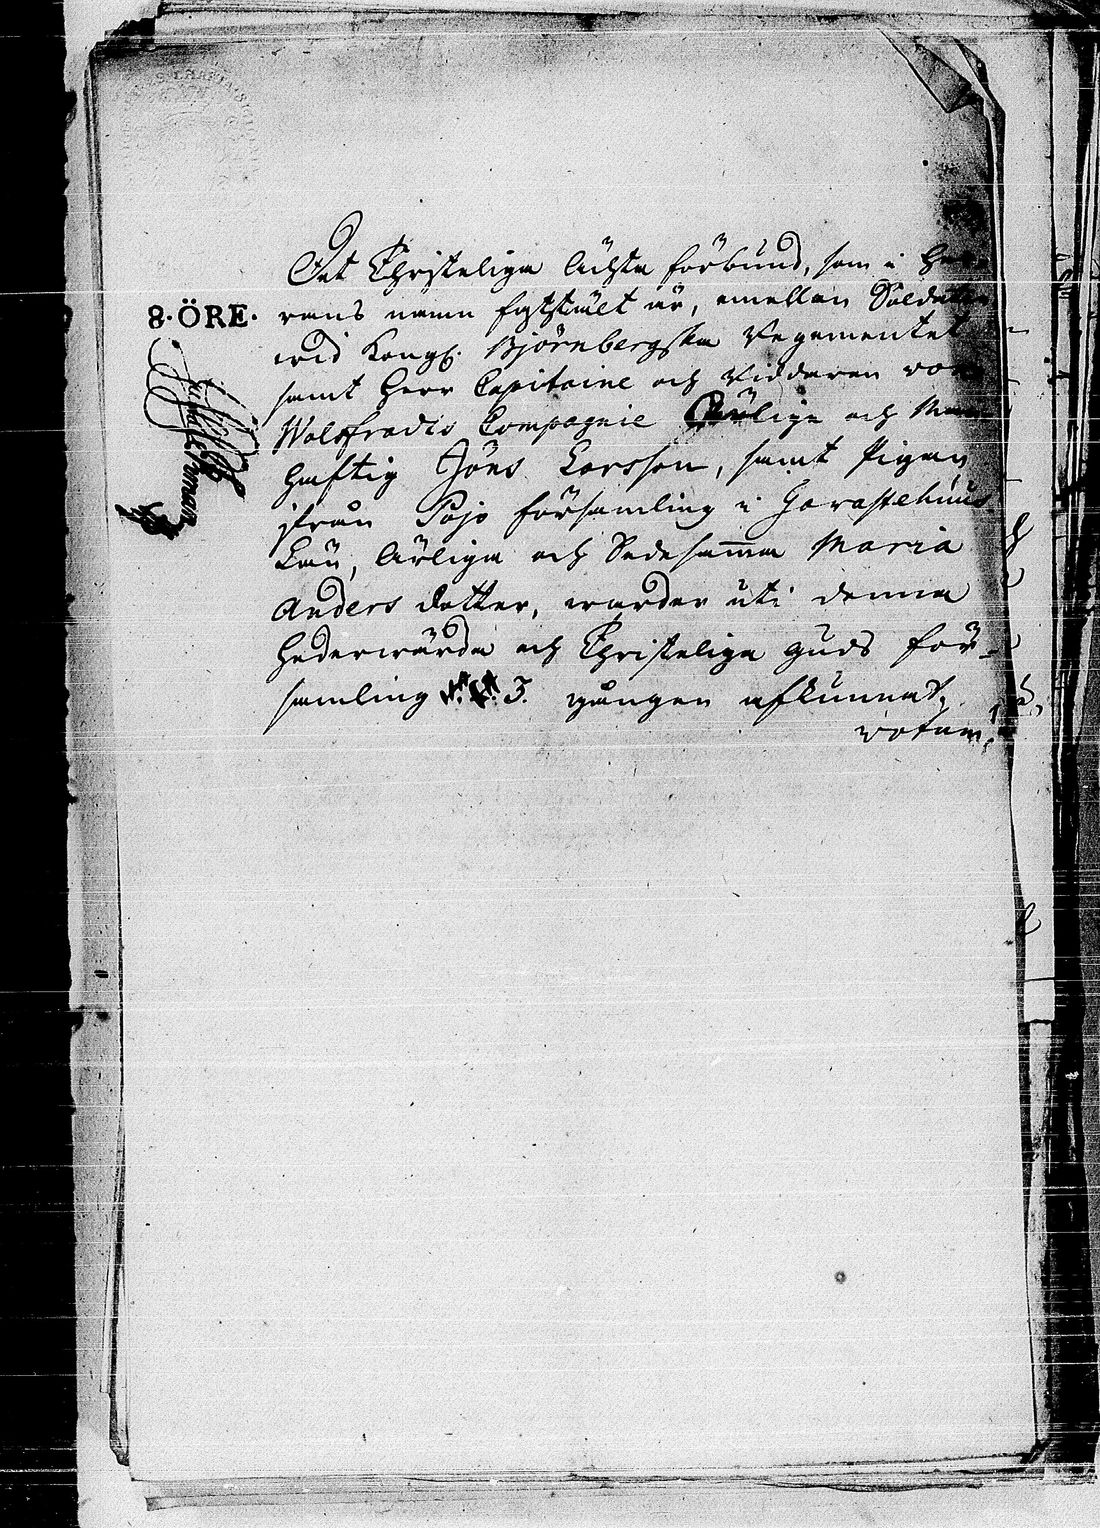 Det Christeliga Ächta förbund, som i Her-
8·ÖRE·
rans namn faststält är, emellan Soldaten
wid Kongl. Björnbergska Regementet
samt Herr Capitaine och Riddaren von
Wolsfradts Compagnie Ärlige och Man-
haftig Jöns Larsson, samt Pigan
ifrån Pojo församling i Tavastehuus
Län, Ärliga och Sedesamma Maria
Anders dotter, warder uti denna
Hederwärda och Christeliga Guds för-
samling 3. gången afkunnat,